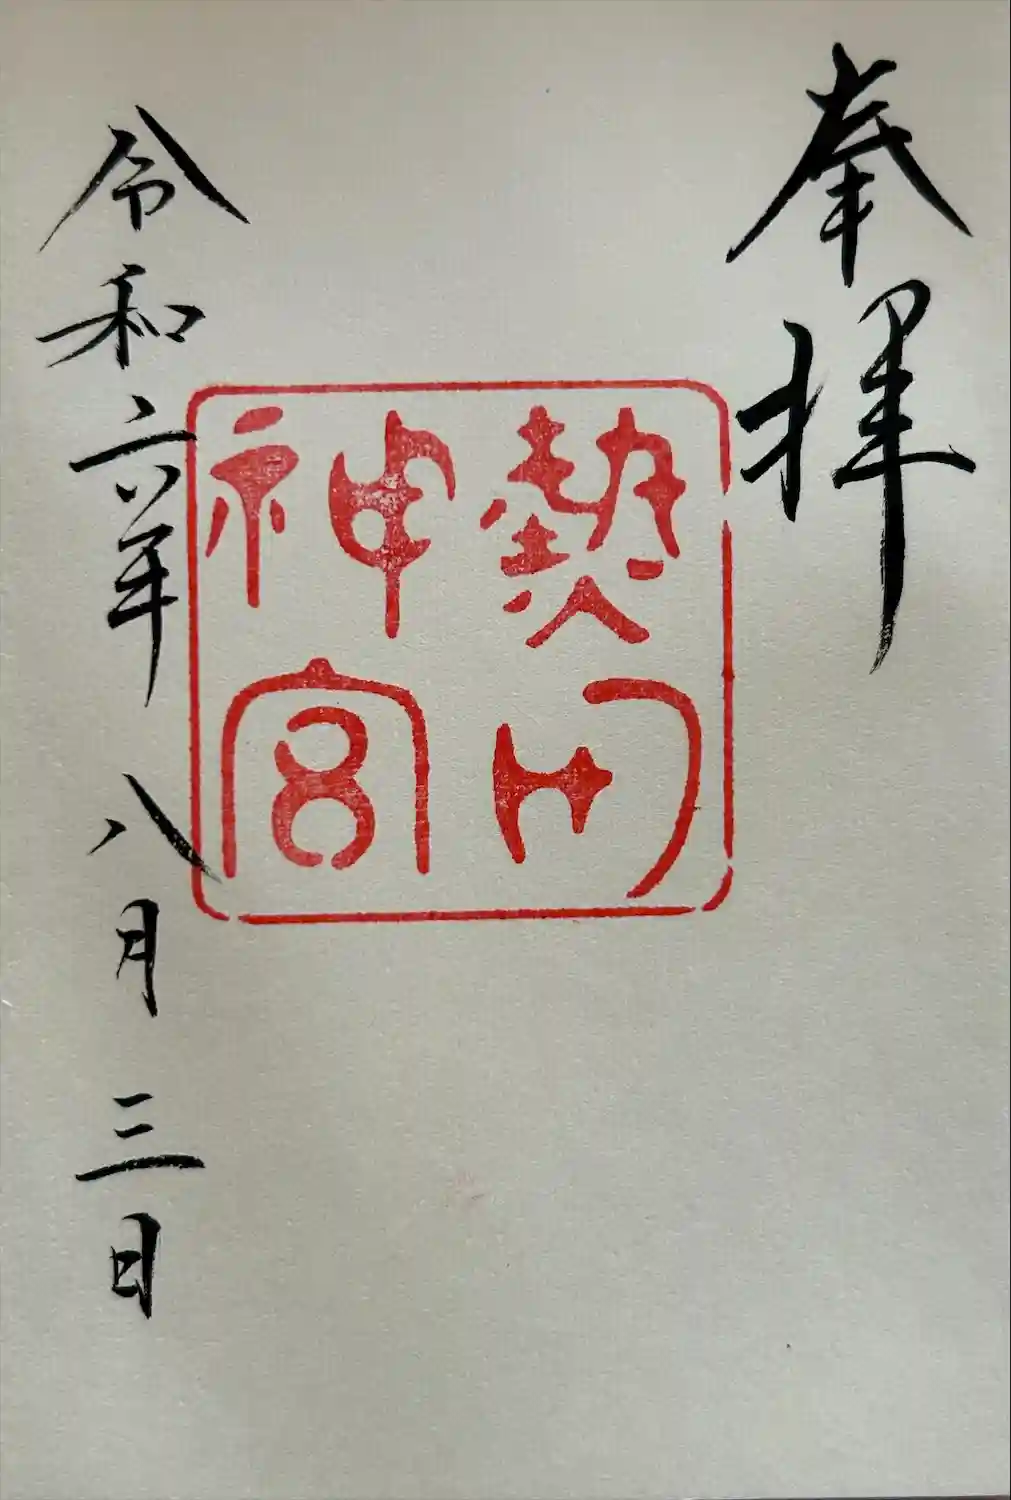 奉拝
熱田
神宮
令和六年 八月 三日